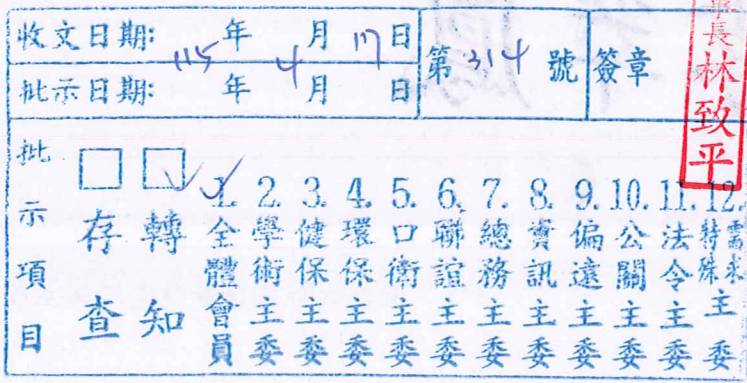 收文日期: 115年 4月 17日
批示日期: 年 月 日
第 314 號
簽章
事長林致平
批示項目
存查
轉知
1. 全體會員
2. 學術主委
3. 健保主委
4. 環保主委
5. 口衛主委
6. 聯誼主委
7. 總務主委
8. 資訊主委
9. 偏遠主委
10. 公關主委
11. 法令主委
12. 特殊需求主委